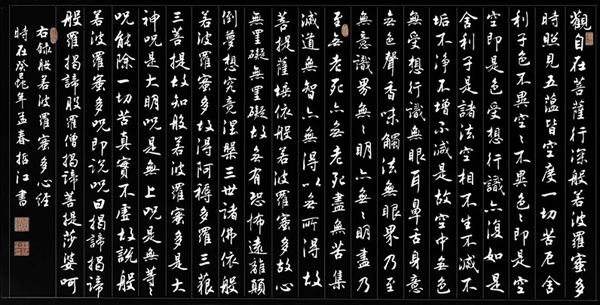 觀自在菩薩行深般若波羅蜜多
時照見五蘊皆空度一切苦厄舍
利子色不異空〻不異色〻即是空
空即是色受想行識亦復如是
舍利子是諸法空相不生不滅不
垢不淨不增不減是故空中無色
無受想行識無眼耳鼻舌身意
無色聲香味觸法無眼界乃至
無意識界無〻明亦無〻明盡乃
至無老死亦無老死盡無苦集
滅道無智亦無得以無所得故
菩提薩埵依般若波羅蜜多故心
無罣礙無罣礙故無有恐怖遠離顛
倒夢想究竟涅槃三世諸佛依般
若波羅蜜多故得阿耨多羅三藐
三菩提故知般若波羅蜜多是大
神咒是大明咒是無上咒是無等〻
咒能除一切苦真實不虛故說般
若波羅蜜多咒即說咒曰揭諦揭諦
般羅揭諦般羅僧揭諦菩提莎婆呵
右錄般若波羅蜜多心經
時在癸年孟春江書